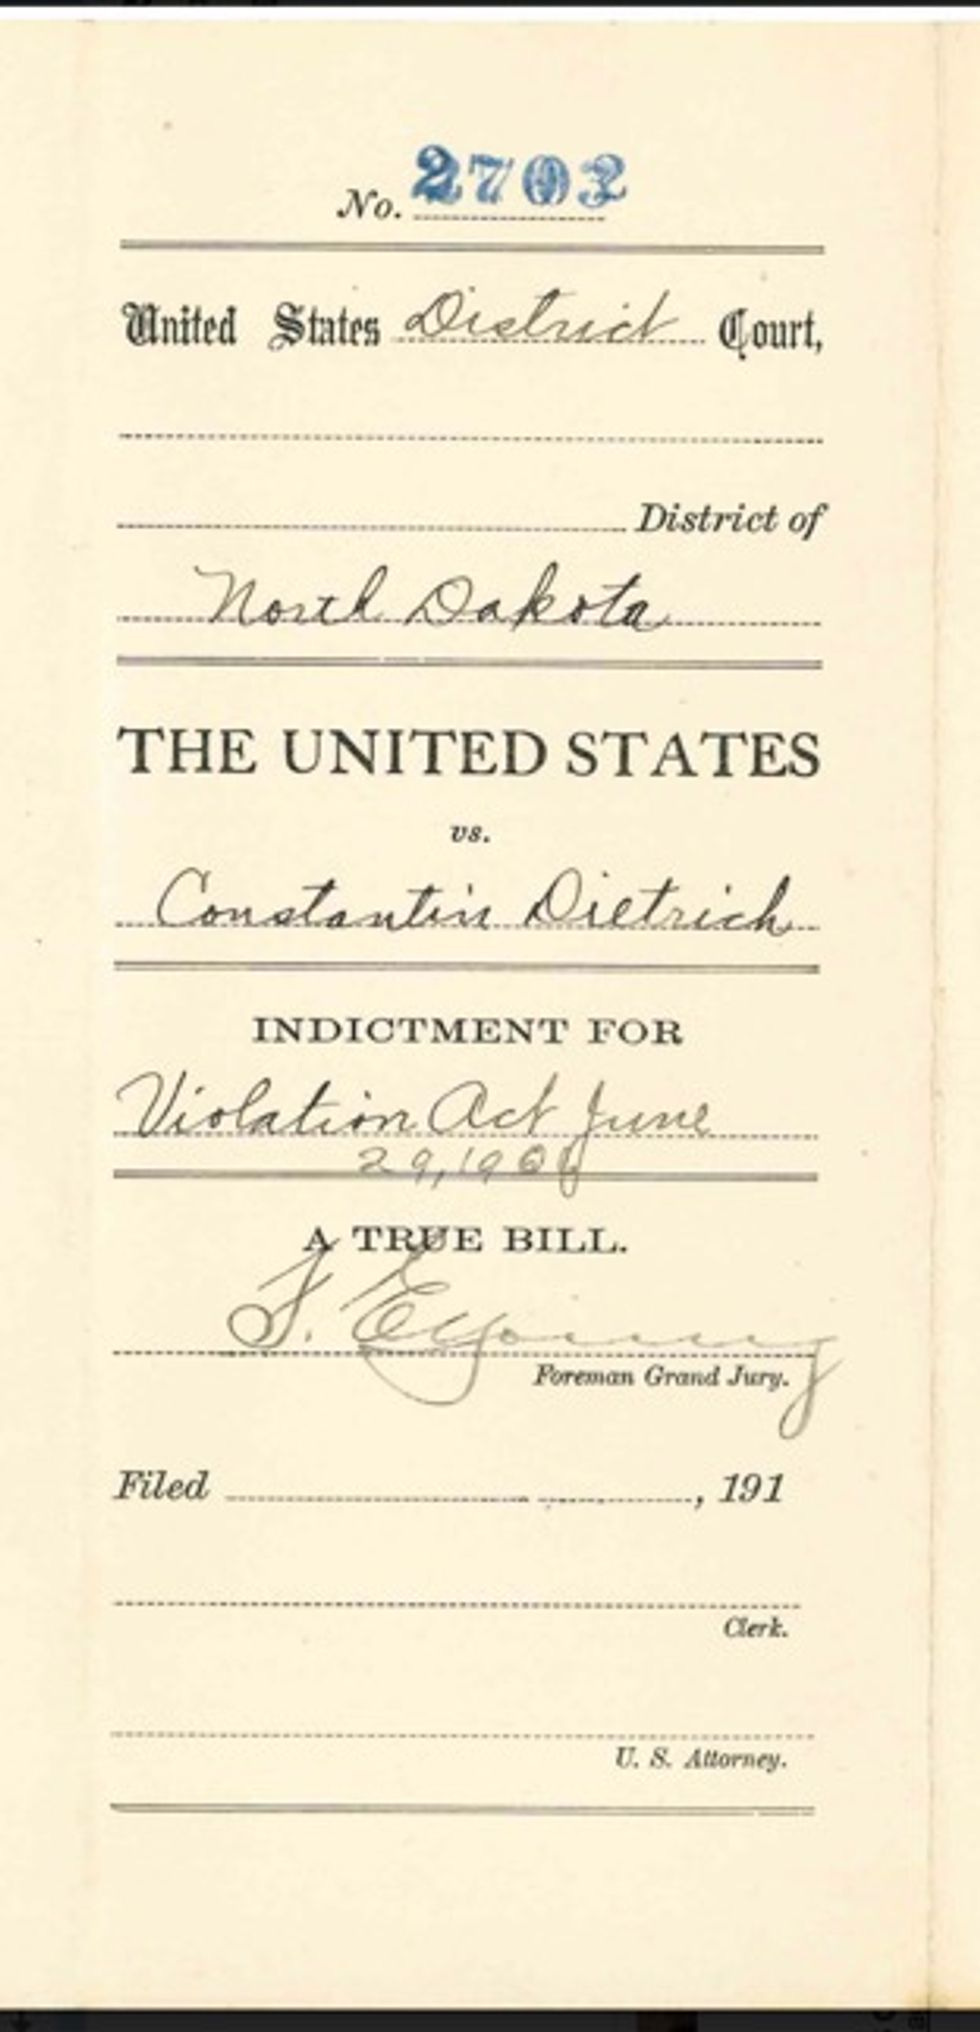 No. 2702
United States District Court,
District of
North Dakota
THE UNITED STATES
vs.
Constantin Dietrich
INDICTMENT FOR
Violation Act June
29, 1906
A TRUE BILL.
F. E. Young
Foreman Grand Jury.
Filed , 191
Clerk.
U. S. Attorney.